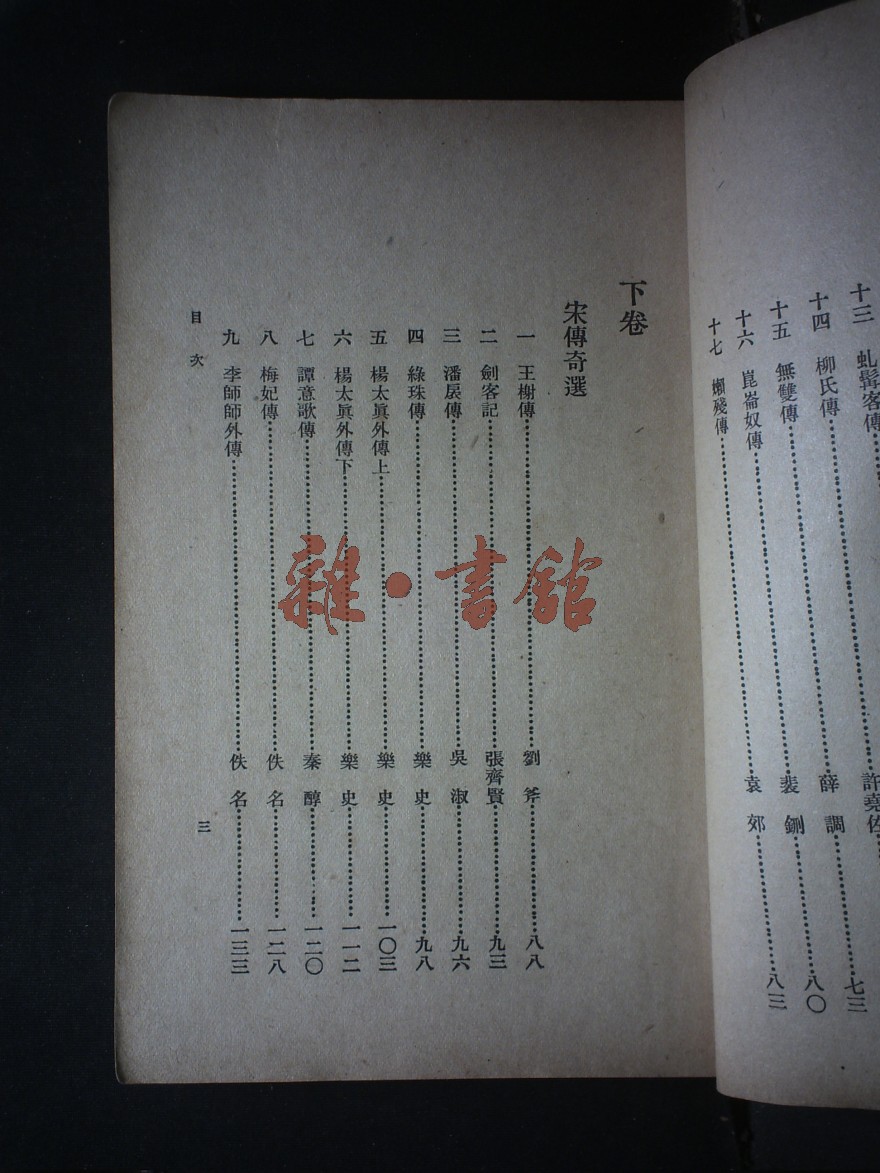 十三 虬髯客傳
十四 柳氏傳……許堯佐
十五 無雙傳……薛調……七三
十六 崑崙奴傳……裴鉶……八〇
十七 懶殘傳……袁郊……八三
下卷
宋傳奇選
一 王榭傳……劉斧……八八
二 劍客記……張齊賢……九三
三 潘扆傳……吳淑……九六
四 綠珠傳……樂史……九八
五 楊太眞外傳上……樂史……一〇三
六 楊太眞外傳下……樂史……一一二
七 譚意歌傳……秦醇……一二〇
八 梅妃傳……佚名……一二八
九 李師師外傳……佚名……一三三
目次
三
雜·書館